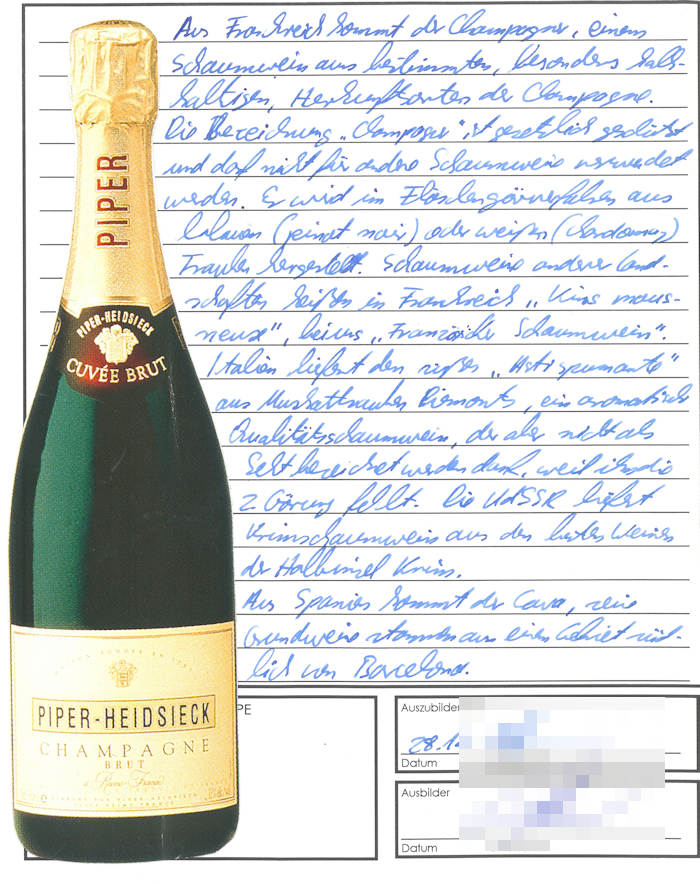 Aus Frankreich kommt der Champagner, einem
Schaumwein aus bestimmten, besonders kalk-
haltigen, Herkunftsorten der Champagne.
Die Bezeichnung „Champagner“ ist gesetzlich geschützt
und darf nicht für andere Schaumweine verwendet
werden. Er wird im Flaschengärverfahren aus
blauen (pinot noir) oder weißen (Chardonnay)
Trauben hergestellt. Schaumweine anderer Land-
schaften heißen in Frankreich „Vins mous-
seux“, bei uns „Französischer Schaumwein“.
Italien liefert den süßen „Asti spumante“
aus Muskattrauben Piemonts, ein aromatischer
Qualitätsschaumwein, der aber nicht als
Sekt bezeichnet werden darf, weil ihm die
2 Gärung fehlt. Die UdSSR liefert
Krimschaumwein aus den besten Weinen
der Halbinsel Krim.
Aus Spanien kommt der Cava, seine
Grundweine stammen aus einem Gebiet süd-
lich von Barcelona.
PIPER
PIPER-HEIDSIECK
CUVÉE BRUT
PIPER-HEIDSIECK
CHAMPAGNE
BRUT
à Reims-France
PE
Auszubilden
28.1
Datum
Ausbilder
Datum